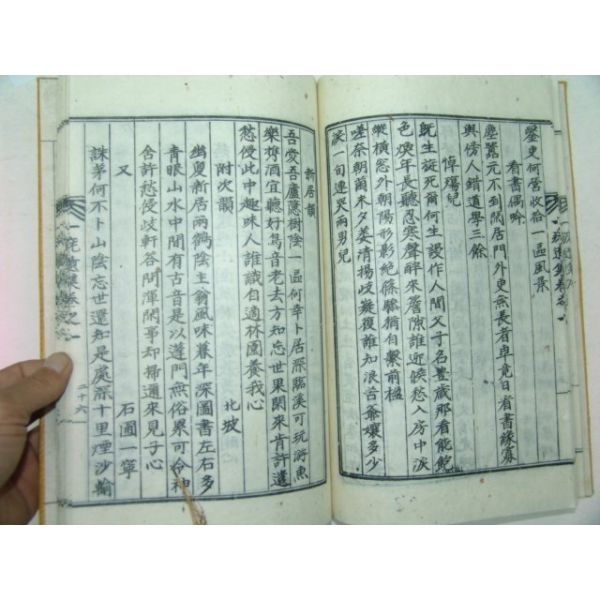 鑿史何營收拾一區風景
看書偶吟
塵囂元不到閑居門外更無長者車竟日看書緣寡
與傍人錯道學三餘
悼殤兒
既生旋死爾何生謾作人間父子名豊歲那看能飽
色煖年長聽忍寒聲醉來啓隙誰近候愁入房中淚
縱橫窓外朝陽形影絶篠驂猶自繫前楹
嗟奈朝菌木夕萎清揚岐嶷復誰知浪舌爺孃多少
淚一旬連哭兩男兒
新居韻
吾愛吾廬隱樹陰一區何幸卜居深臨溪可玩游魚
樂携酒宜聽好鳥音老去方知忘世果閑來肯許遣
愁侵此中趣味人誰識自適林園養我心
附次韻 北坡
幽叟新居兩鶴陰主翁風味暮年深圖書左右多
青眼山水中間有古音是以蓬門無俗累可令神
舍許愁侵岐軒谷間渾閑事却掃通來見子心
又 石圃一寧
誅茅何不卜山陰忘世還知是處深十里煙沙輸
遺集卷之一
二十六